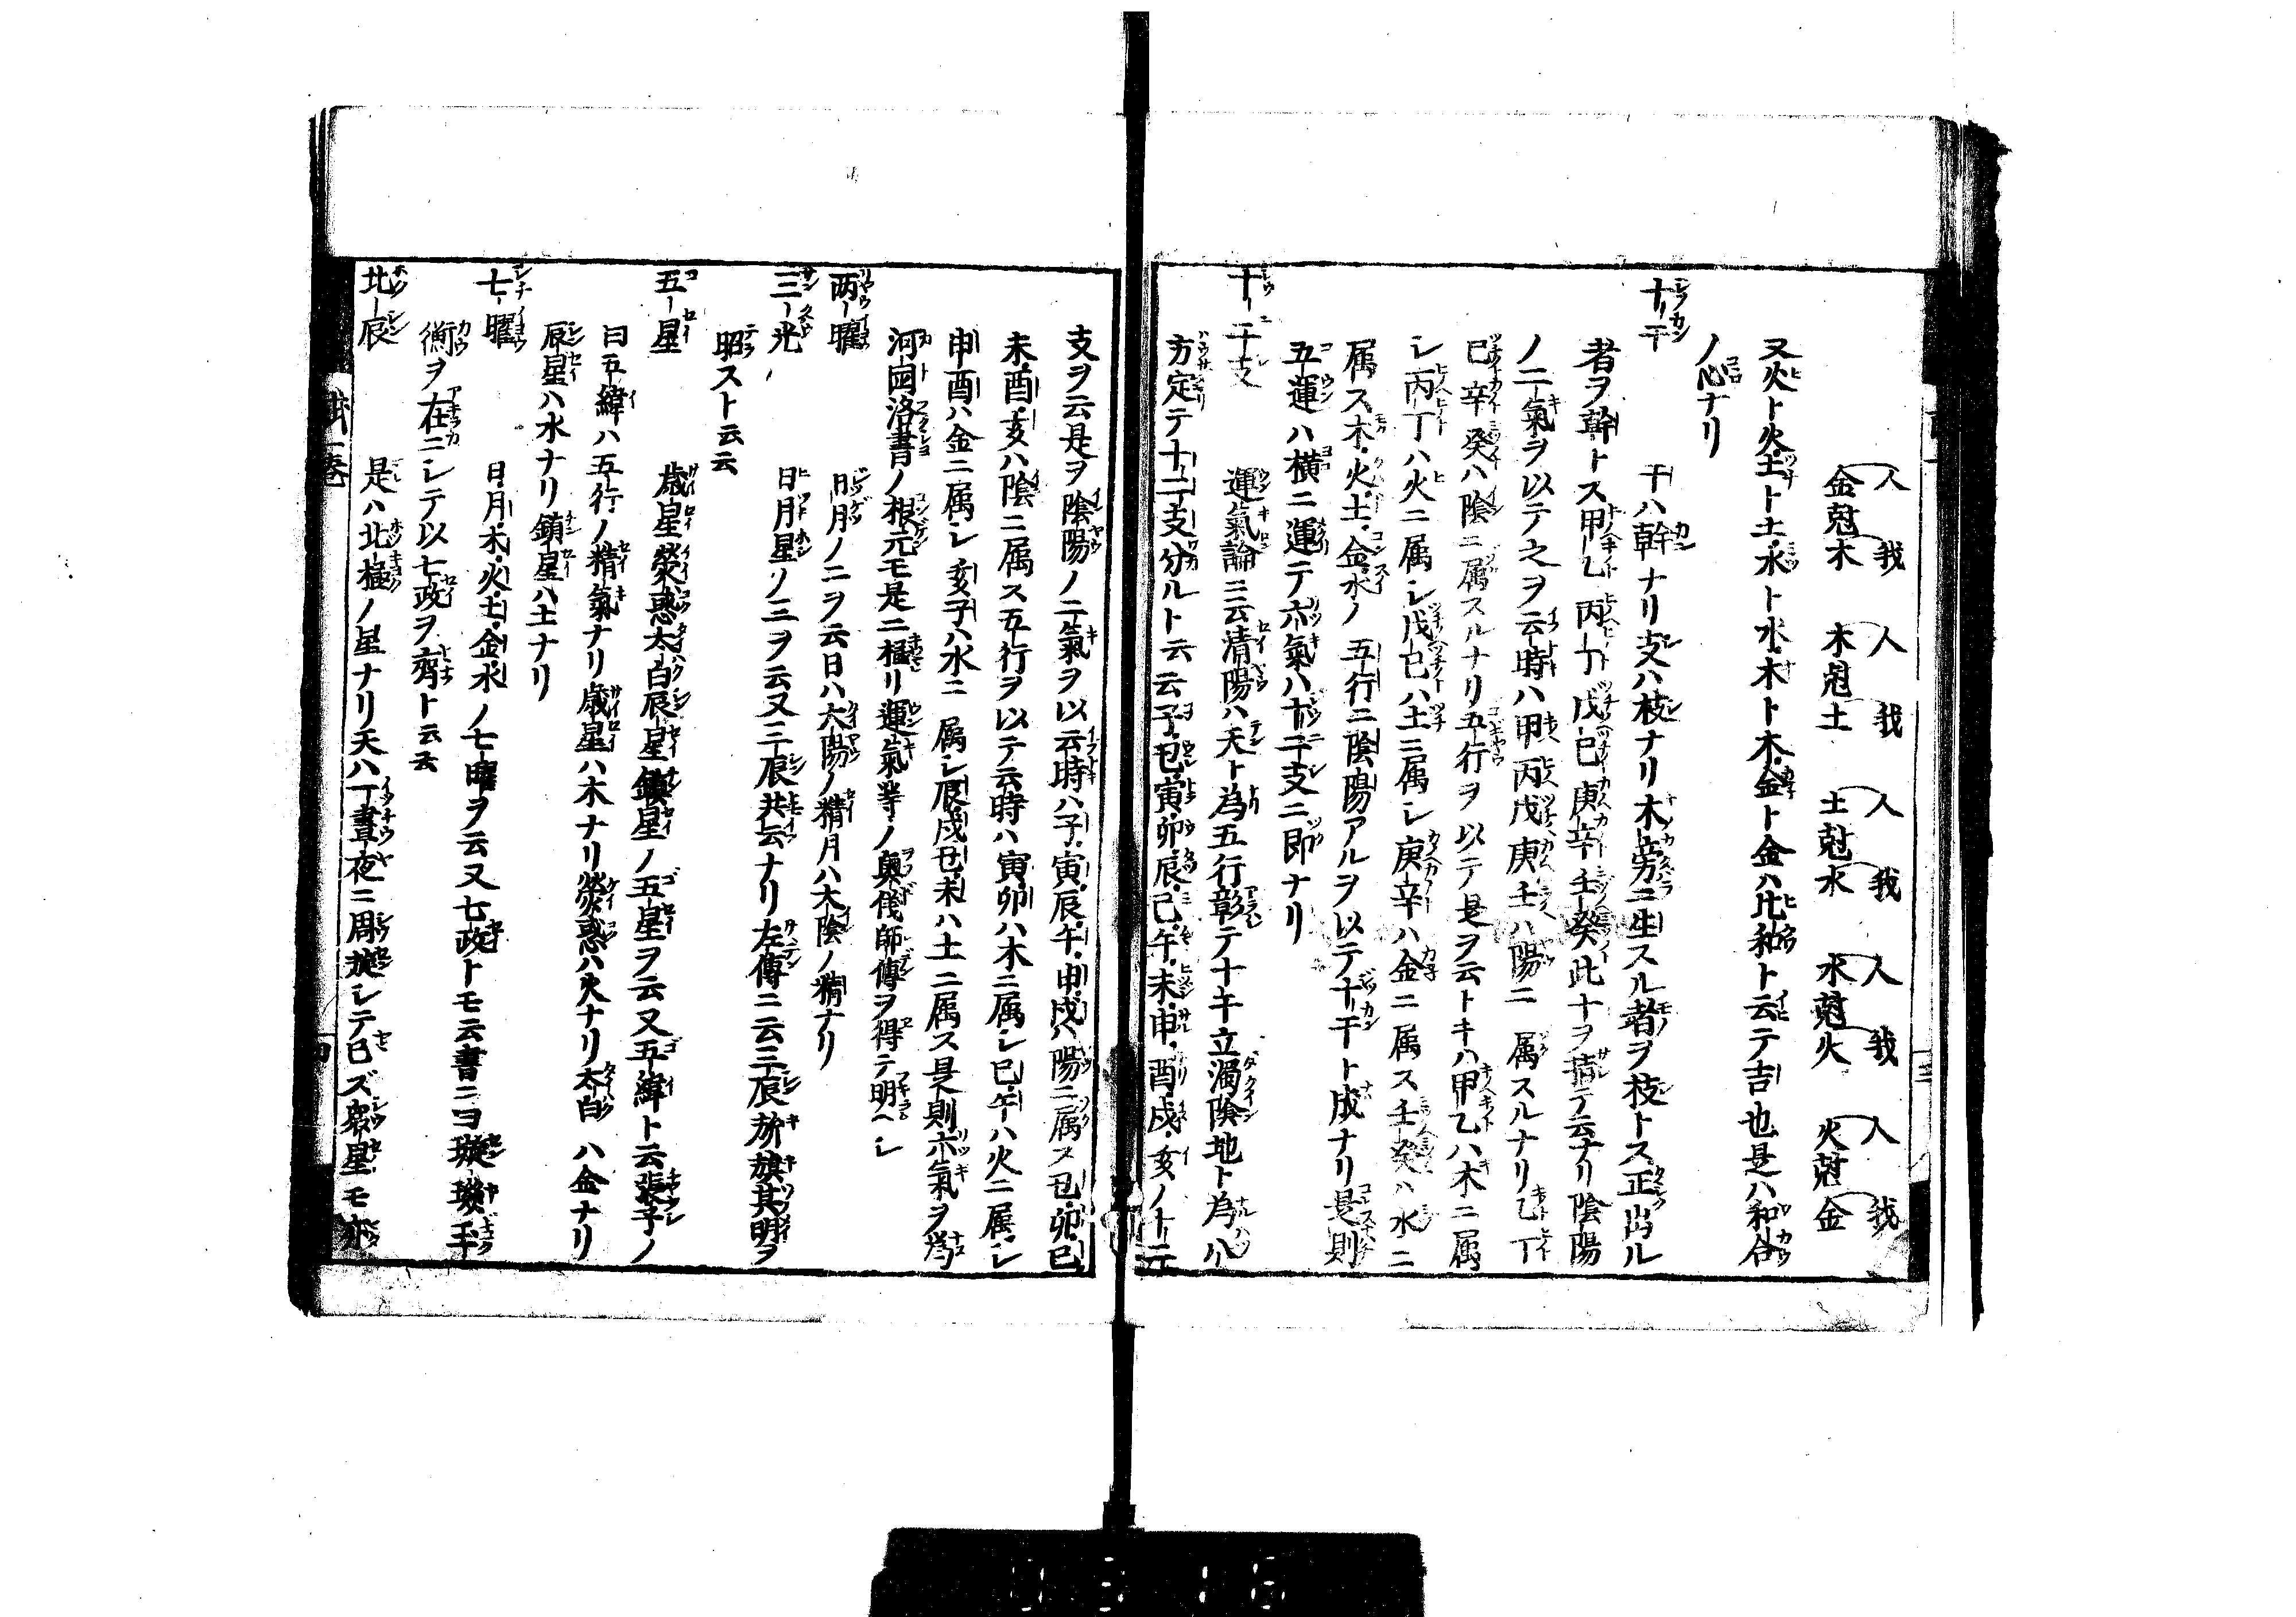 人我 人我 人我 人我 人我
金尅木 木尅土 土尅水 水尅火 火尅金
又火ト火土ト土水ト水木ト木金ト金ハ比和ト云テ吉也是ハ和合
ノ心ナリ
十干 干ハ幹ナリ支ハ枝ナリ木旁ニ生スル者ヲ枝トス正出ル
者ヲ幹トス甲乙丙丁戊己庚辛壬癸此十ヲ指テ云ナリ陰陽
ノ二氣ヲ以テ之ヲ云時ハ甲丙戊庚壬ハ陽ニ属スルナリ乙丁
己辛癸ハ陰ニ属スルナリ五行ヲ以テ是ヲ云トキハ甲乙ハ木ニ属
シ丙丁ハ火ニ属シ戊己ハ土ニ属シ庚辛ハ金ニ属ス壬癸ハ水ニ
属ス木火土金水ノ五行ニ陰陽アルヲ以テ十干ト成ナリ是則
五運ハ横ニ運テ六氣ハ十二支ニ即ナリ
十二支 運氣論ニ云清陽ハ天ト為五行彰テ十干立濁陰地ト為八
方定テ十二支分ルト云云子丑寅卯辰巳午未申酉戌亥ノ十二
支ヲ云是ヲ陰陽ノ二氣ヲ以云時ハ子寅辰午申戌ハ陽ニ属ス丑卯巳
未酉亥ハ陰ニ属ス五行ヲ以テ云時ハ寅卯ハ木ニ属シ巳午ハ火ニ属シ
申酉ハ金ニ属シ亥子ハ水ニ属シ辰戌丑未ハ土ニ属ス是則六氣ヲ為
河図洛書ノ根元モ是ニ極リ運氣等ノ奥儀師傳ヲ得テ明ヘシ
両曜 日月ノ二ヲ云日ハ太陽ノ精月ハ太陰ノ精ナリ
三光 日月星ノ三ヲ云又三辰共云ナリ左傳ニ云三辰旂旗其明ヲ
昭スト云云
五星 歳星熒惑太白辰星鎮星ノ五星ヲ云又五緯ト云張子ノ
曰五緯ハ五行ノ精氣ナリ歳星ハ木ナリ熒惑ハ火ナリ太白ハ金ナリ
辰星ハ水ナリ鎮星ハ土ナリ
七曜 日月木火土金水ノ七曜ヲ云又七政トモ云書ニヨ璇璣玉
衡ヲ在ニシテ以七政ヲ齊ト云云
北辰 是ハ北極ノ星ナリ天ハ一晝夜ニ周旋シテ已ズ衆星モ亦